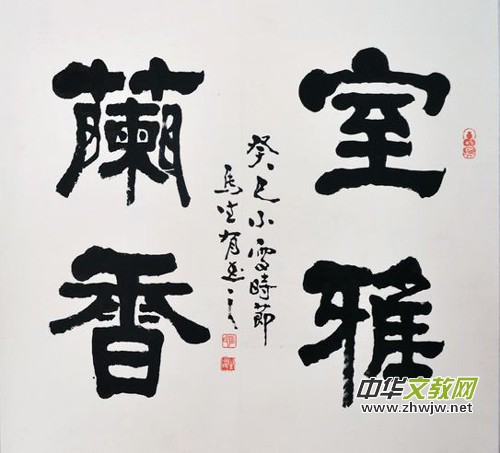 室雅
蘭香
癸巳小雪時節
中华文教网
www.zhwjw.net